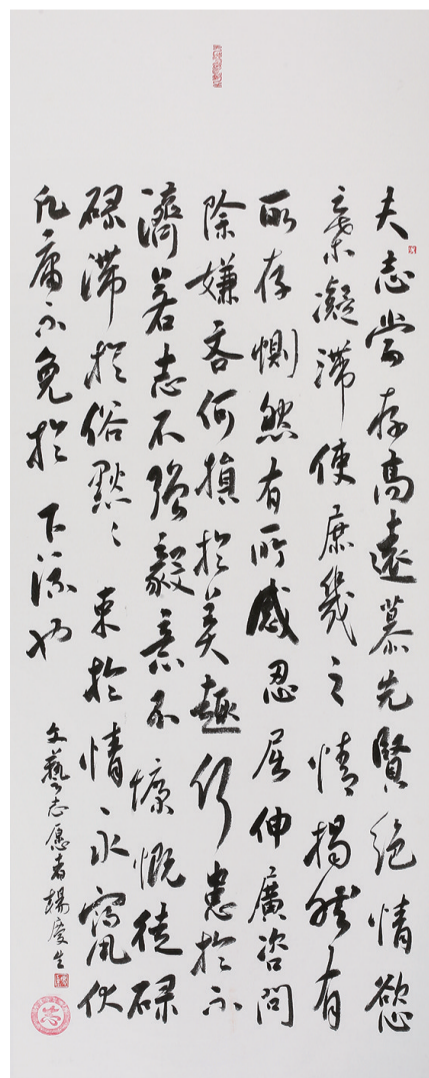 夫志當存高遠慕先賢絕情慾
棄凝滯使庶幾之情揭然有
所存惻然有所感忍屈伸廣咨問
除嫌吝何損於美趣何患於不
濟若志不強毅意不慷慨徒碌
碌滯於俗默〻束於情永竄伏
凡庸不免於下流也
文藝志愿者楊慶生